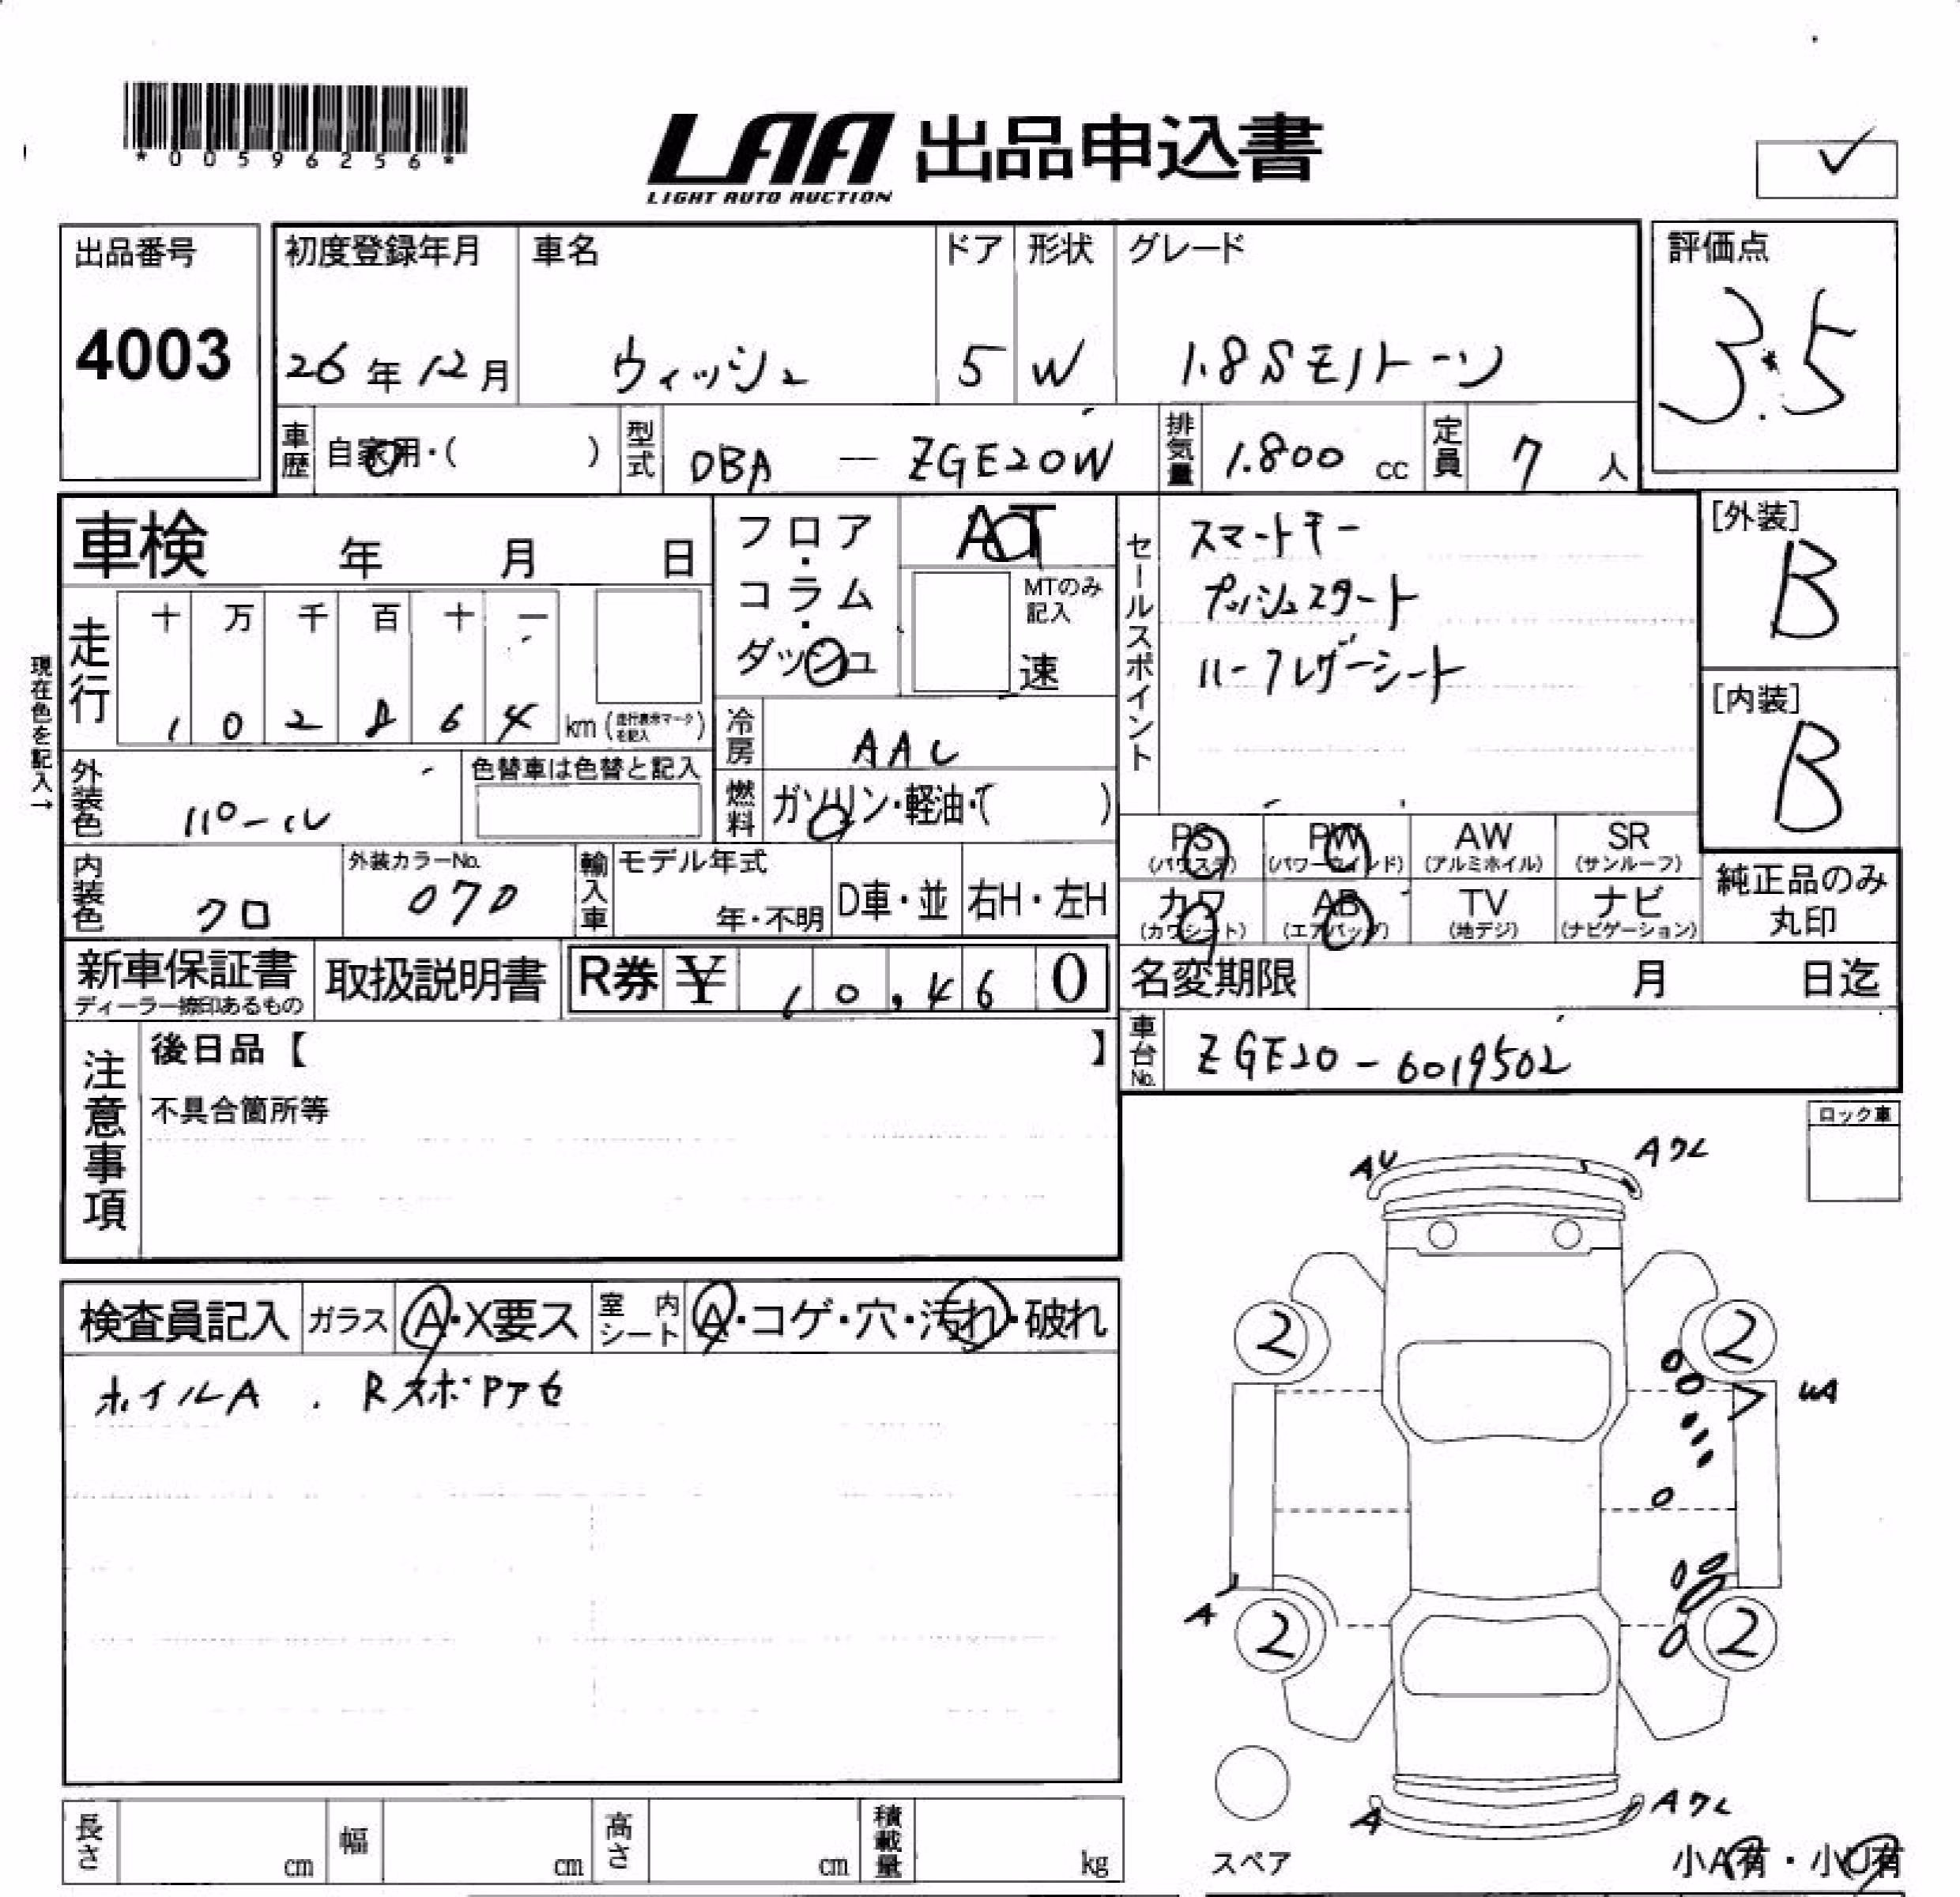 *00596256*
LAA 出品申込書
LIGHT AUTO AUCTION
✓
出品番号
4003
初度登録年月
26年12月
車名
ウィッシュ
ドア
5
形状
W
グレード
1.8S モノトーン
評価点
3.5
車歴 自家用・( )
型式 DBA — ZGE20W
排気量 1.800 cc
定員 7 人
車検 年 月 日
フロア・コラム・ダッシュ
AT
MTのみ記入
速
セールスポイント
スマートキー
プッシュスタート
ハーフレザーシート
[外装]
B
[内装]
B
現在色を記入→
走行
十 万 千 百 十 一
1 0 2 8 6 4
km (走行表示マークを記入)
冷房 AAC
外装色 パール
色替車は色替と記入
燃料 ガソリン・軽油・( )
PS (パワステ)
PW (パワーウインド)
AW (アルミホイル)
SR (サンルーフ)
カワ (カワシート)
AB (エアバッグ)
TV (地デジ)
ナビ (ナビゲーション)
純正品のみ丸印
内装色 クロ
外装カラーNo.
070
輸入車
モデル年式
年・不明
D車・並
右H・左H
新車保証書
ディーラー捺印あるもの
取扱説明書
R券 ¥ 10,460
名変期限 月 日迄
車台No. ZGE20-6019502
注意事項
後日品【 】
不具合箇所等
ロック車
検査員記入
ガラス A・X要ス
室内シート A・コゲ・穴・汚れ・破れ
ホイルA . RスポPアセ
AU
Aワレ
2
2
UA
A
2
2
A
Aワレ
スペア
小A有・小U有
長さ cm
幅 cm
高さ cm
積載量 kg